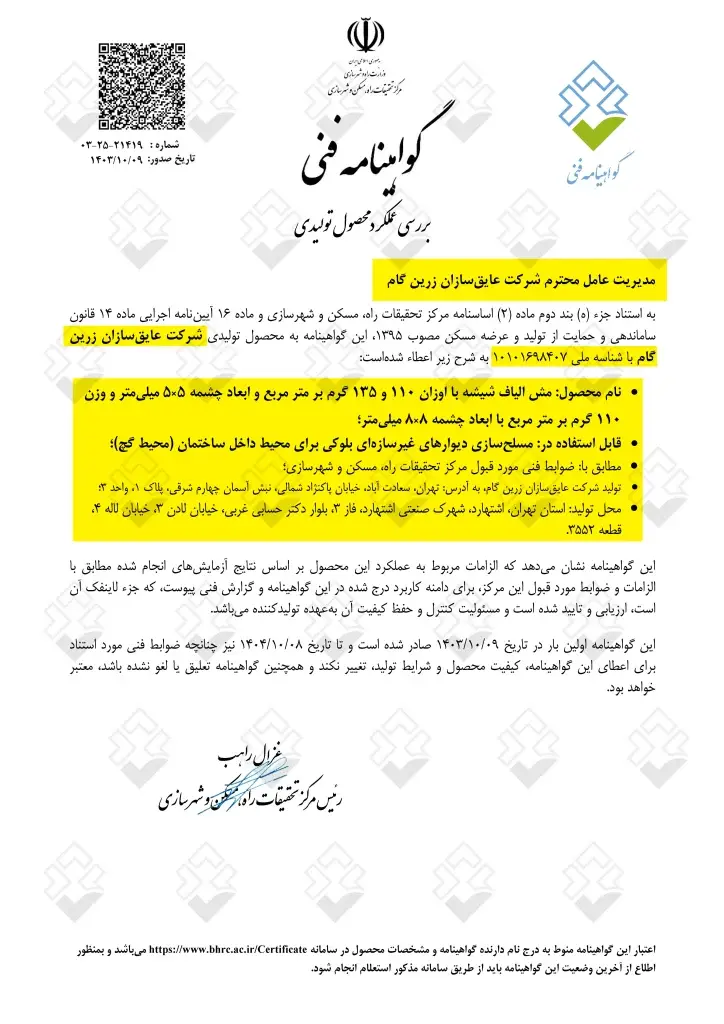 جمهوری اسلامی ایران
وزارت راه و شهرسازی
مرکز تحقیقات راه، مسکن و شهرسازی
گواهینامه فنی
شماره : ۰۳-۲۵-۲۱۴۱۹
تاریخ صدور: ۱۴۰۳/۱۰/۰۹
گواهینامه فنی
بررسی عملکرد محصول تولیدی
مدیریت عامل محترم شرکت عایق‌سازان زرین گام
به استناد جزء (ه) بند دوم ماده (۲) اساسنامه مرکز تحقیقات راه، مسکن و شهرسازی و ماده ۱۶ آیین‌نامه اجرایی ماده ۱۴ قانون
ساماندهی و حمایت از تولید و عرضه مسکن مصوب ۱۳۹۵، این گواهینامه به محصول تولیدی شرکت عایق‌سازان زرین
گام با شناسه ملی ۱۰۱۰۱۶۹۸۴۰۷ به شرح زیر اعطاء شده‌است:
• نام محصول: مش الیاف شیشه با اوزان ۱۱۰ و ۱۳۵ گرم بر متر مربع و ابعاد چشمه ۵×۵ میلی‌متر و وزن
۱۱۰ گرم بر متر مربع با ابعاد چشمه ۸×۸ میلی‌متر؛
• قابل استفاده در: مسلح‌سازی دیوارهای غیرسازه‌ای بلوکی برای محیط داخل ساختمان (محیط گچ)؛
• مطابق با: ضوابط فنی مورد قبول مرکز تحقیقات راه، مسکن و شهرسازی؛
• تولید شرکت عایق‌سازان زرین گام، به آدرس: تهران، سعادت آباد، خیابان پاکنژاد شمالی، نبش آسمان چهارم شرقی، پلاک ۱، واحد ۳؛
• محل تولید: استان تهران، اشتهارد، شهرک صنعتی اشتهارد، فاز ۳، بلوار دکتر حسابی غربی، خیابان لادن ۳، خیابان لاله ۴،
قطعه ۳۵۵۲.
این گواهینامه نشان می‌دهد که الزامات مربوط به عملکرد این محصول بر اساس نتایج آزمایش‌های انجام شده مطابق با
الزامات و ضوابط مورد قبول این مرکز، برای دامنه کاربرد درج شده در این گواهینامه و گزارش فنی پیوست، که جزء لاینفک آن
است، ارزیابی و تایید شده است و مسئولیت کنترل و حفظ کیفیت آن به‌عهده تولیدکننده می‌باشد.
این گواهینامه اولین بار در تاریخ ۱۴۰۳/۱۰/۰۹ صادر شده است و تا تاریخ ۱۴۰۴/۱۰/۰۸ نیز چنانچه ضوابط فنی مورد استناد
برای اعطای این گواهینامه، کیفیت محصول و شرایط تولید، تغییر نکند و همچنین گواهینامه تعلیق یا لغو نشده باشد، معتبر
خواهد بود.
غزال راهب
رئیس مرکز تحقیقات راه، مسکن و شهرسازی
اعتبار این گواهینامه منوط به درج نام دارنده گواهینامه و مشخصات محصول در سامانه https://www.bhrc.ac.ir/Certificate می‌باشد و بمنظور
اطلاع از آخرین وضعیت این گواهینامه باید از طریق سامانه مذکور استعلام انجام شود.